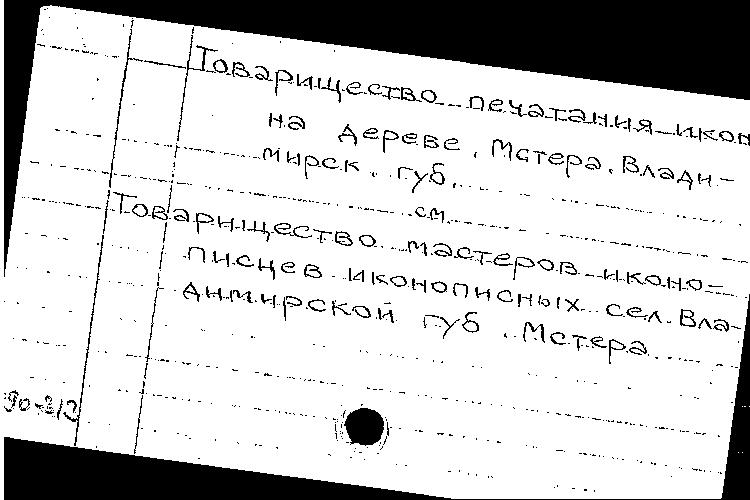 Товарищество печатания икон
на дереве. Мстера. Влади-
мирск. губ.
см.
Товарищество мастеров иконо-
писцев иконописных сел. Вла-
димирской губ. Мстера
90-312